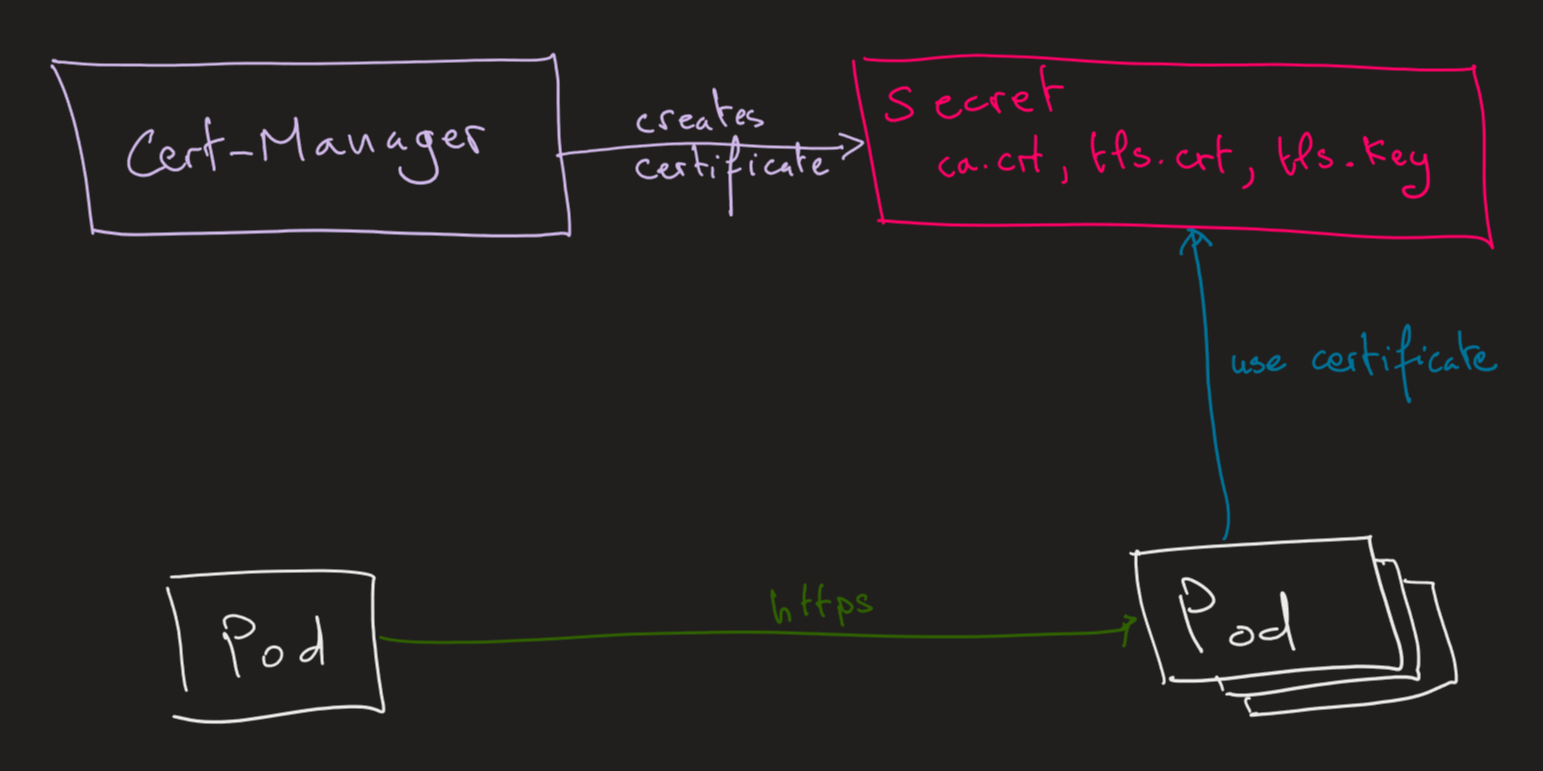 Cert-Manager
creates
certificate
Secret
ca.crt, tls.crt, tls.key
use certificate
https
Pod
Pod